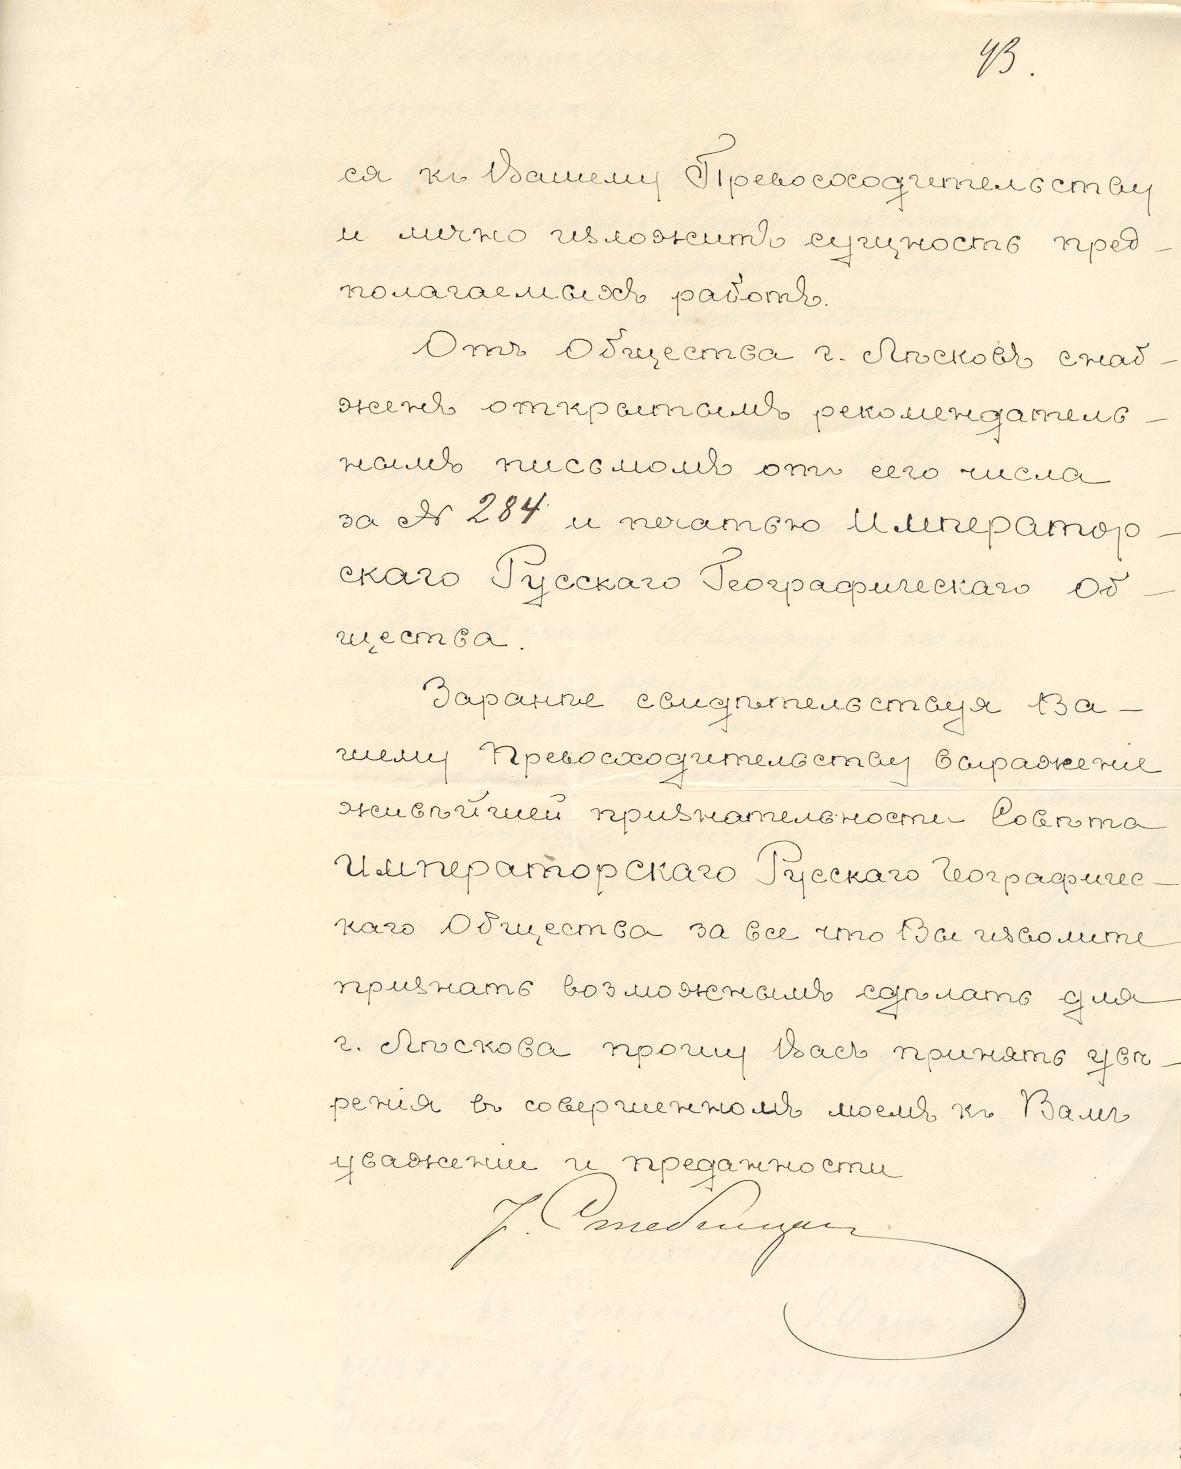 43.
ся къ Вашему Превосходительству
и лично изложить сущность пред-
полагаемыхъ работъ.
Отъ Общества г. Лѣсковъ снаб-
женъ открытымъ рекомендатель-
нымъ письмомъ отъ сего числа
за № 284 и печатью Император-
скаго Русскаго Географическаго Об-
щества.
Заранѣе свидѣтельствуя Ва-
шему Превосходительству выраженіе
живѣйшей признательности Совѣта
Императорскаго Русскаго Географичес-
каго Общества за все что Вы изволите
признать возможнымъ сдѣлать для
г. Лѣскова прошу Васъ принять увѣ-
ренія въ совершенномъ моемъ къ Вамъ
уваженіи и преданности